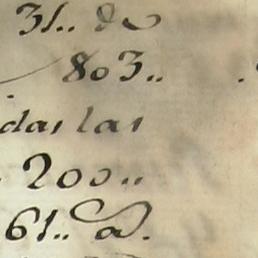 31.. de
803..
das las
200..
61.. a.